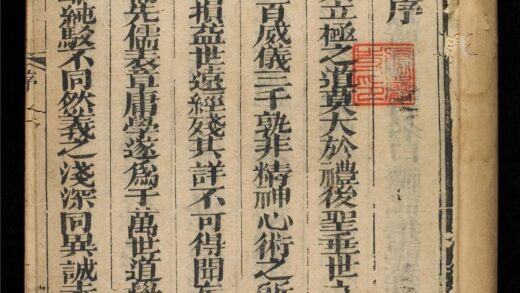 序
立極之道莫大於禮後聖垂世立
百威儀三千孰非精神心術之所
損益世遠經殘其詳不可得聞矣
先儒表章庸學遂爲千萬世道學
純駁不同然義之淺深同異誠未
序